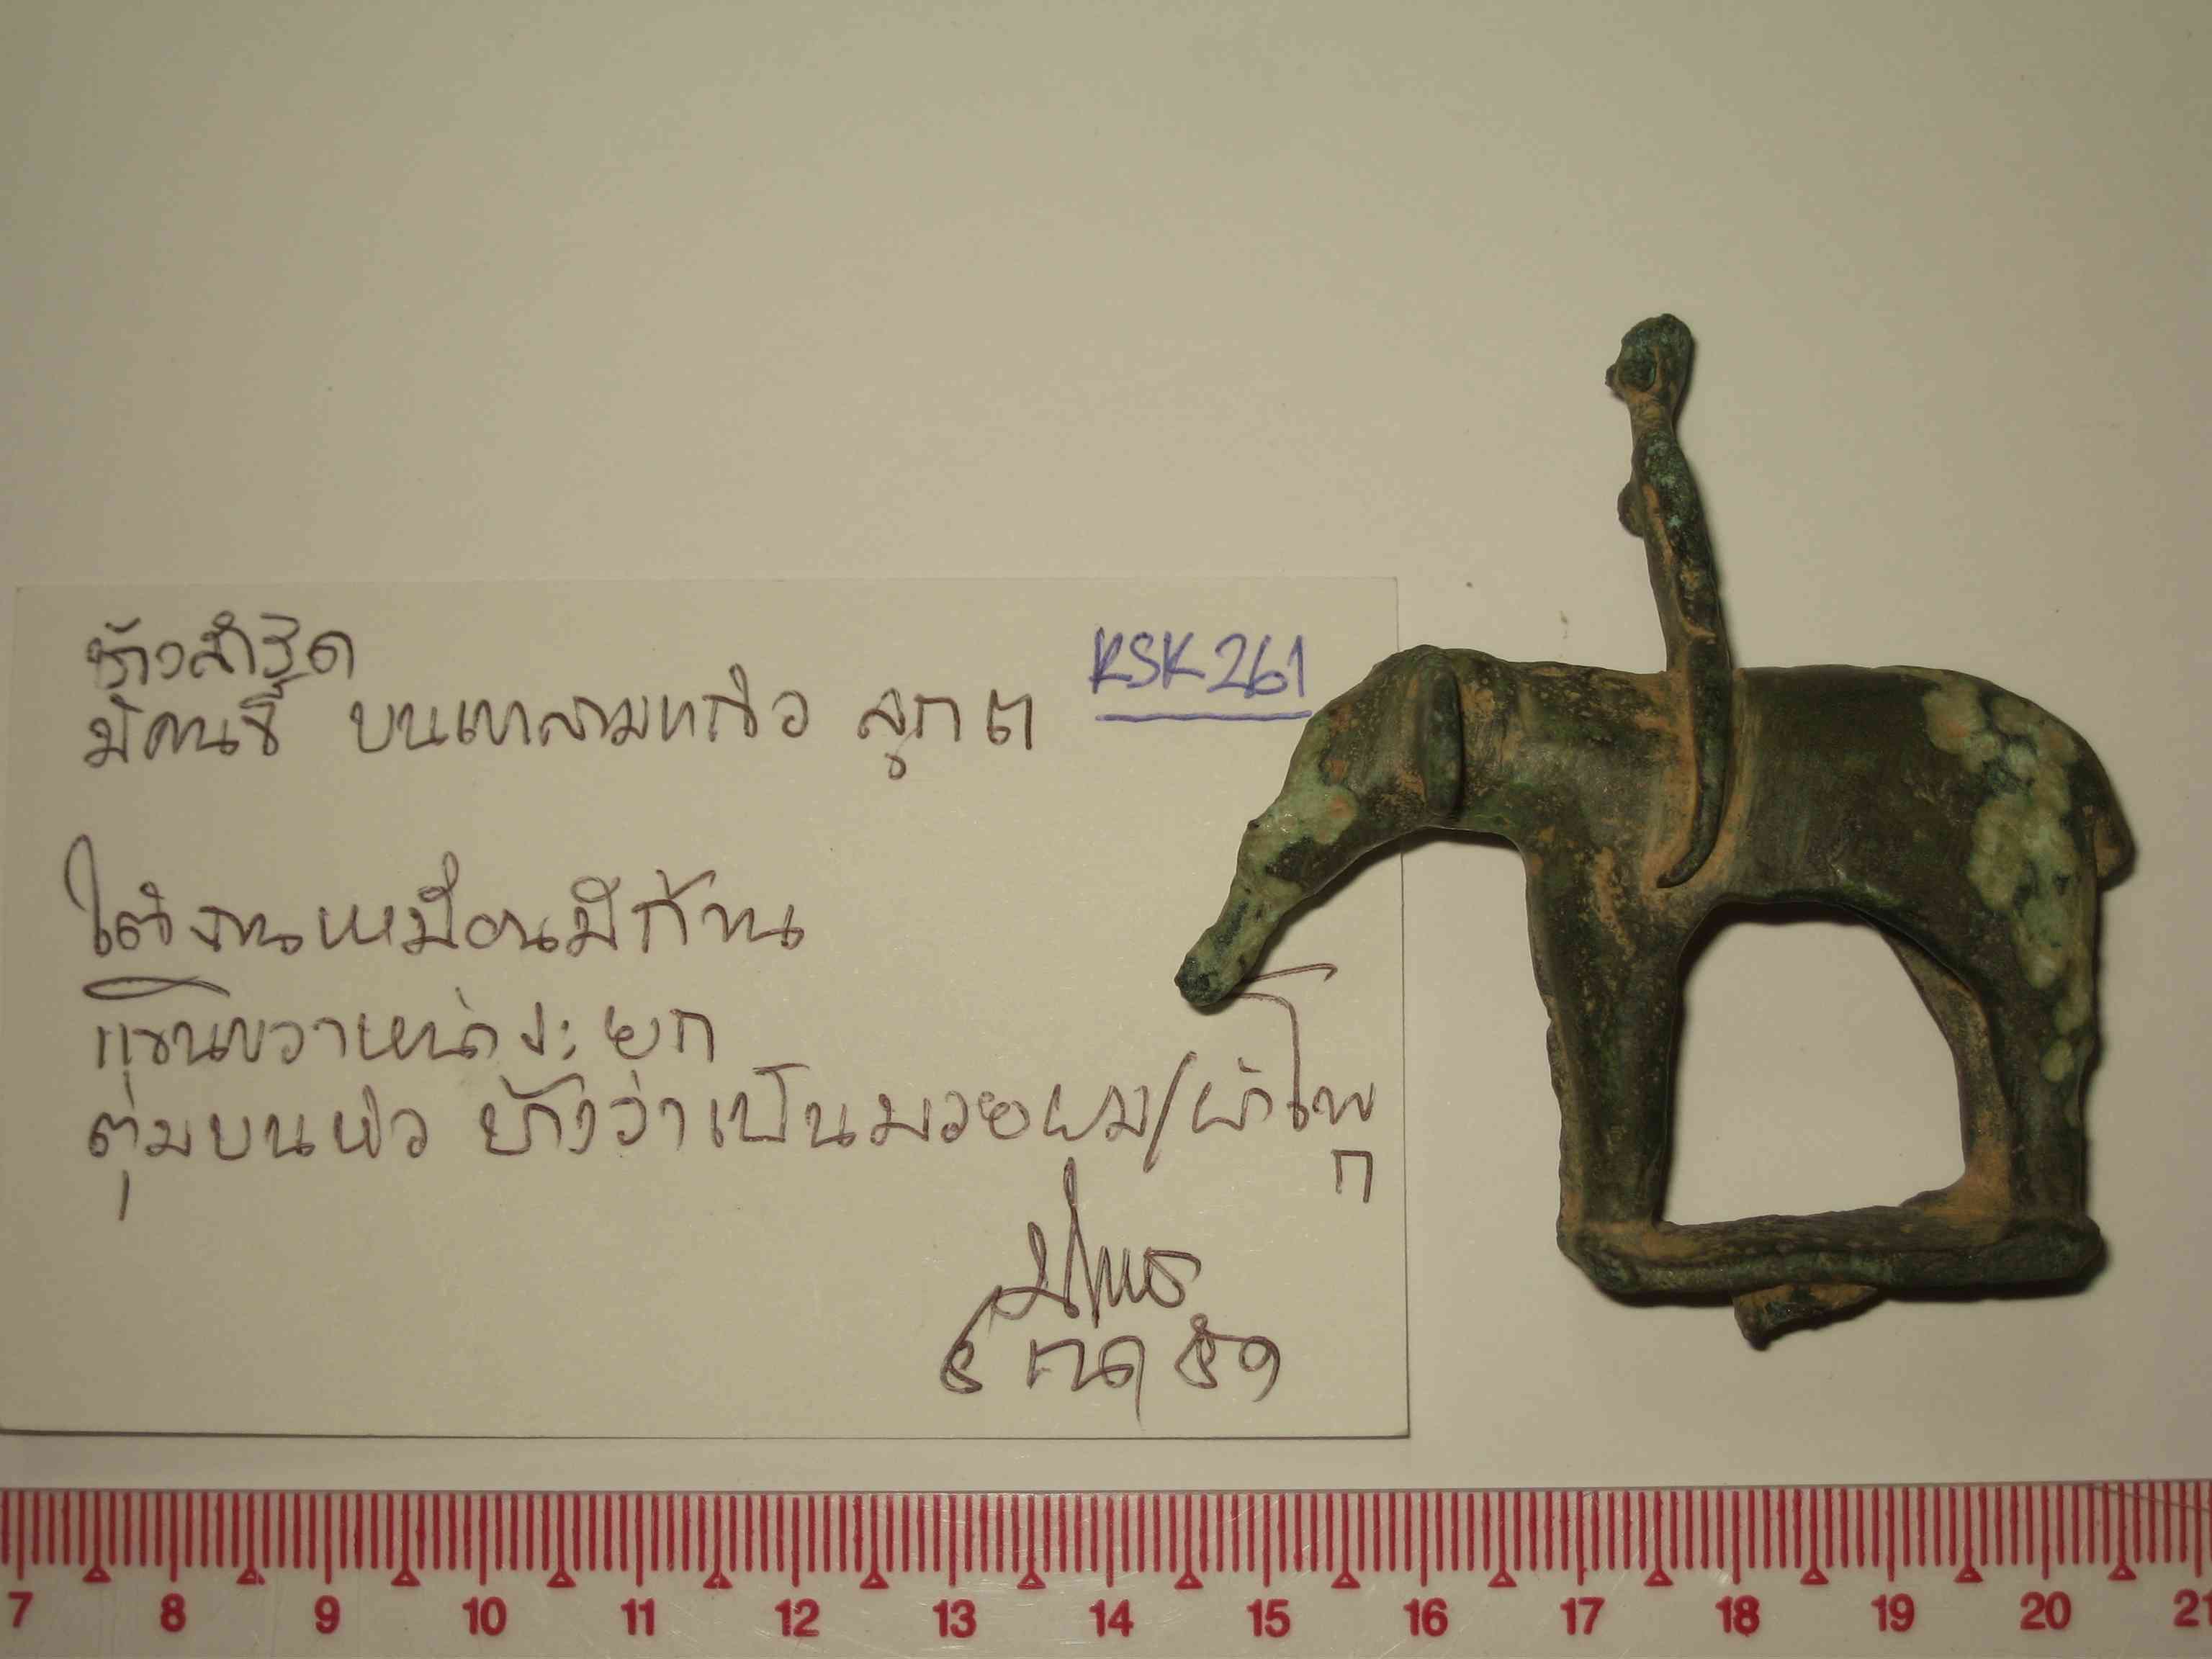 ช้างสำริด
KSK 261
มีคนขี่ บนเสาสามเหลี่ยม
ใต้งานเหมือนมีก้าน
แขนขวาหน้าจะยก
ตุ่มบนหัว บ้างว่าเป็นมวยผม/ผ้าโพก
๕ กค ๕๑
7 8 9 10 11 12 13 14 15 16 17 18 19 20 21